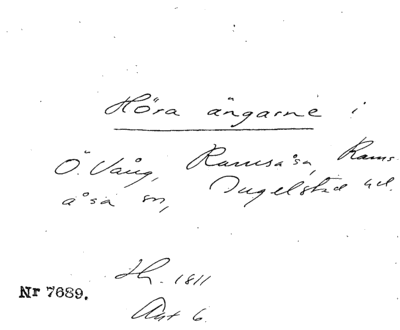 Höra ängarne i
Ö. Vång, Ramsåsa, Rams-
åsa sn, Ingelstad hd.
Nr 7689.
1811
Akt 6.